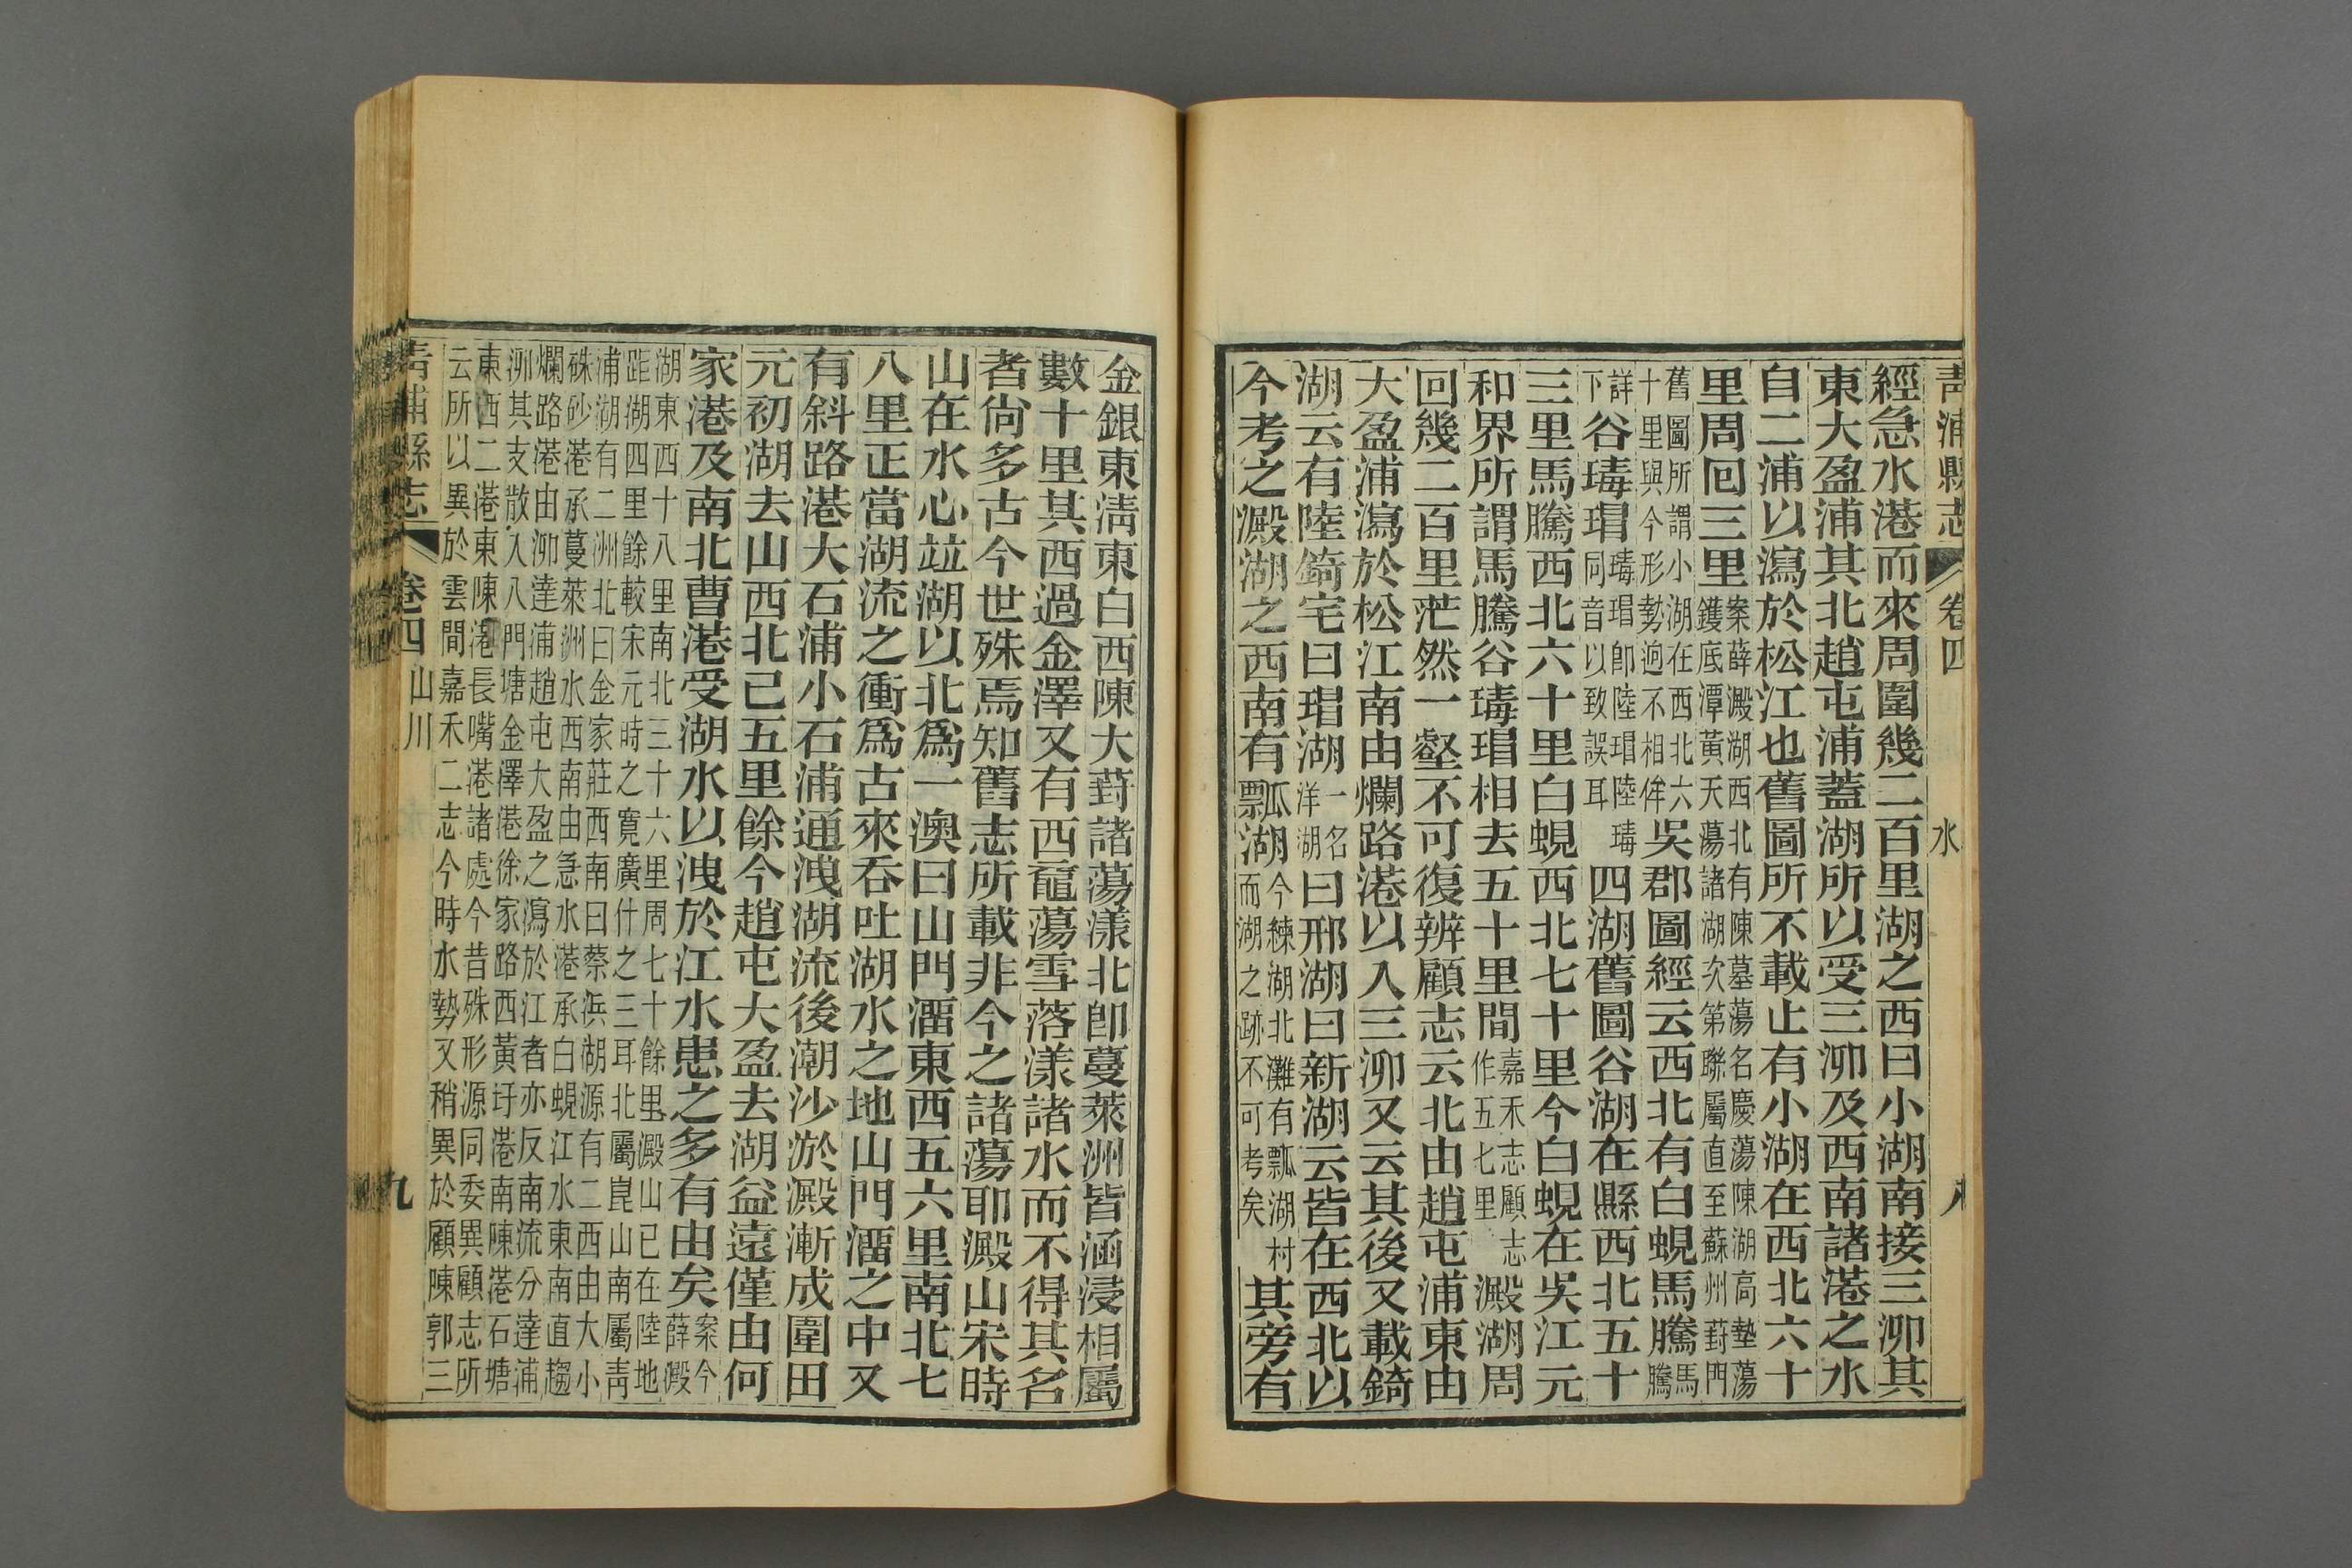 靑浦縣志 卷四 水 八
經急水港而來周圍幾二百里湖之西曰小湖南接三泖其
東大盈浦其北趙屯浦蓋湖所以受三泖及西南諸港之水
自二浦以瀉於松江也舊圖所不載止有小湖在西北六十
里周回三里案薛澱湖西北有陳墓蕩名慶蕩陳湖高墊蕩
鑊底潭黃天蕩諸湖次第聯屬直至蘇州葑門
舊圖所謂小湖在西北六
十里與今形勢迥不相侔吳郡圖經云西北有白蜆馬騰馬
騰
詳
下谷瑇瑁瑇瑁卽陸瑁陸瑇
同音以致誤耳四湖舊圖谷湖在縣西北五十
三里馬騰西北六十里白蜆西北七十里今白蜆在吳江元
和界所謂馬騰谷瑇瑁相去五十里間嘉禾志顧志
作五七里澱湖周
回幾二百里茫然一壑不可復辨顧志云北由趙屯浦東由
大盈浦瀉於松江南由爛路港以入三泖又云其後又載錡
湖云有陸錡宅曰瑁湖一名
洋湖曰邢湖曰新湖云皆在西北以
今考之澱湖之西南有瓢湖今練湖北灘有瓢湖村
而湖之跡不可考矣其旁有
金銀東淸東白西陳大葑諸蕩漾北卽蔓萊洲皆涵浸相屬
數十里其西過金澤又有西黿蕩雪落漾諸水而不得其名
者尙多古今世殊焉知舊志所載非今之諸蕩耶澱山宋時
山在水心竝湖以北爲一澳曰山門溜東西五六里南北七
八里正當湖流之衝爲古來吞吐湖水之地山門溜之中又
有斜路港大石浦小石浦通洩湖流後潮沙淤澱漸成圍田
元初湖去山西北已五里餘今趙屯大盈去湖益遠僅由何
家港及南北曹港受湖水以洩於江水患之多有由矣案今
薛澱
湖東西十八里南北三十六里周七十餘里澱山已在陸地
距湖四里餘較宋元時之寬廣什之三耳北屬崑山南屬靑
浦湖有二洲北曰金家莊西南曰蔡浜湖源有二西由大小
硃砂港承蔓萊洲水西南由急水港承白蜆江水東南直趨
爛路港由泖達浦趙屯大盈之瀉於江者亦反南流分達浦
泖其支散入八門塘金澤港徐家路西黃圩港南陳港石塘
東西二港東陳港長嘴港諸處今昔殊形源同委異顧志所
云所以異於雲間嘉禾二志今時水勢又稍異於顧陳郭三
靑浦縣志 卷四 山川 九